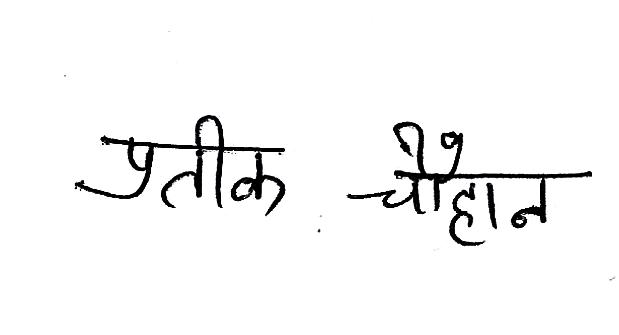 प्रतीक चौहान